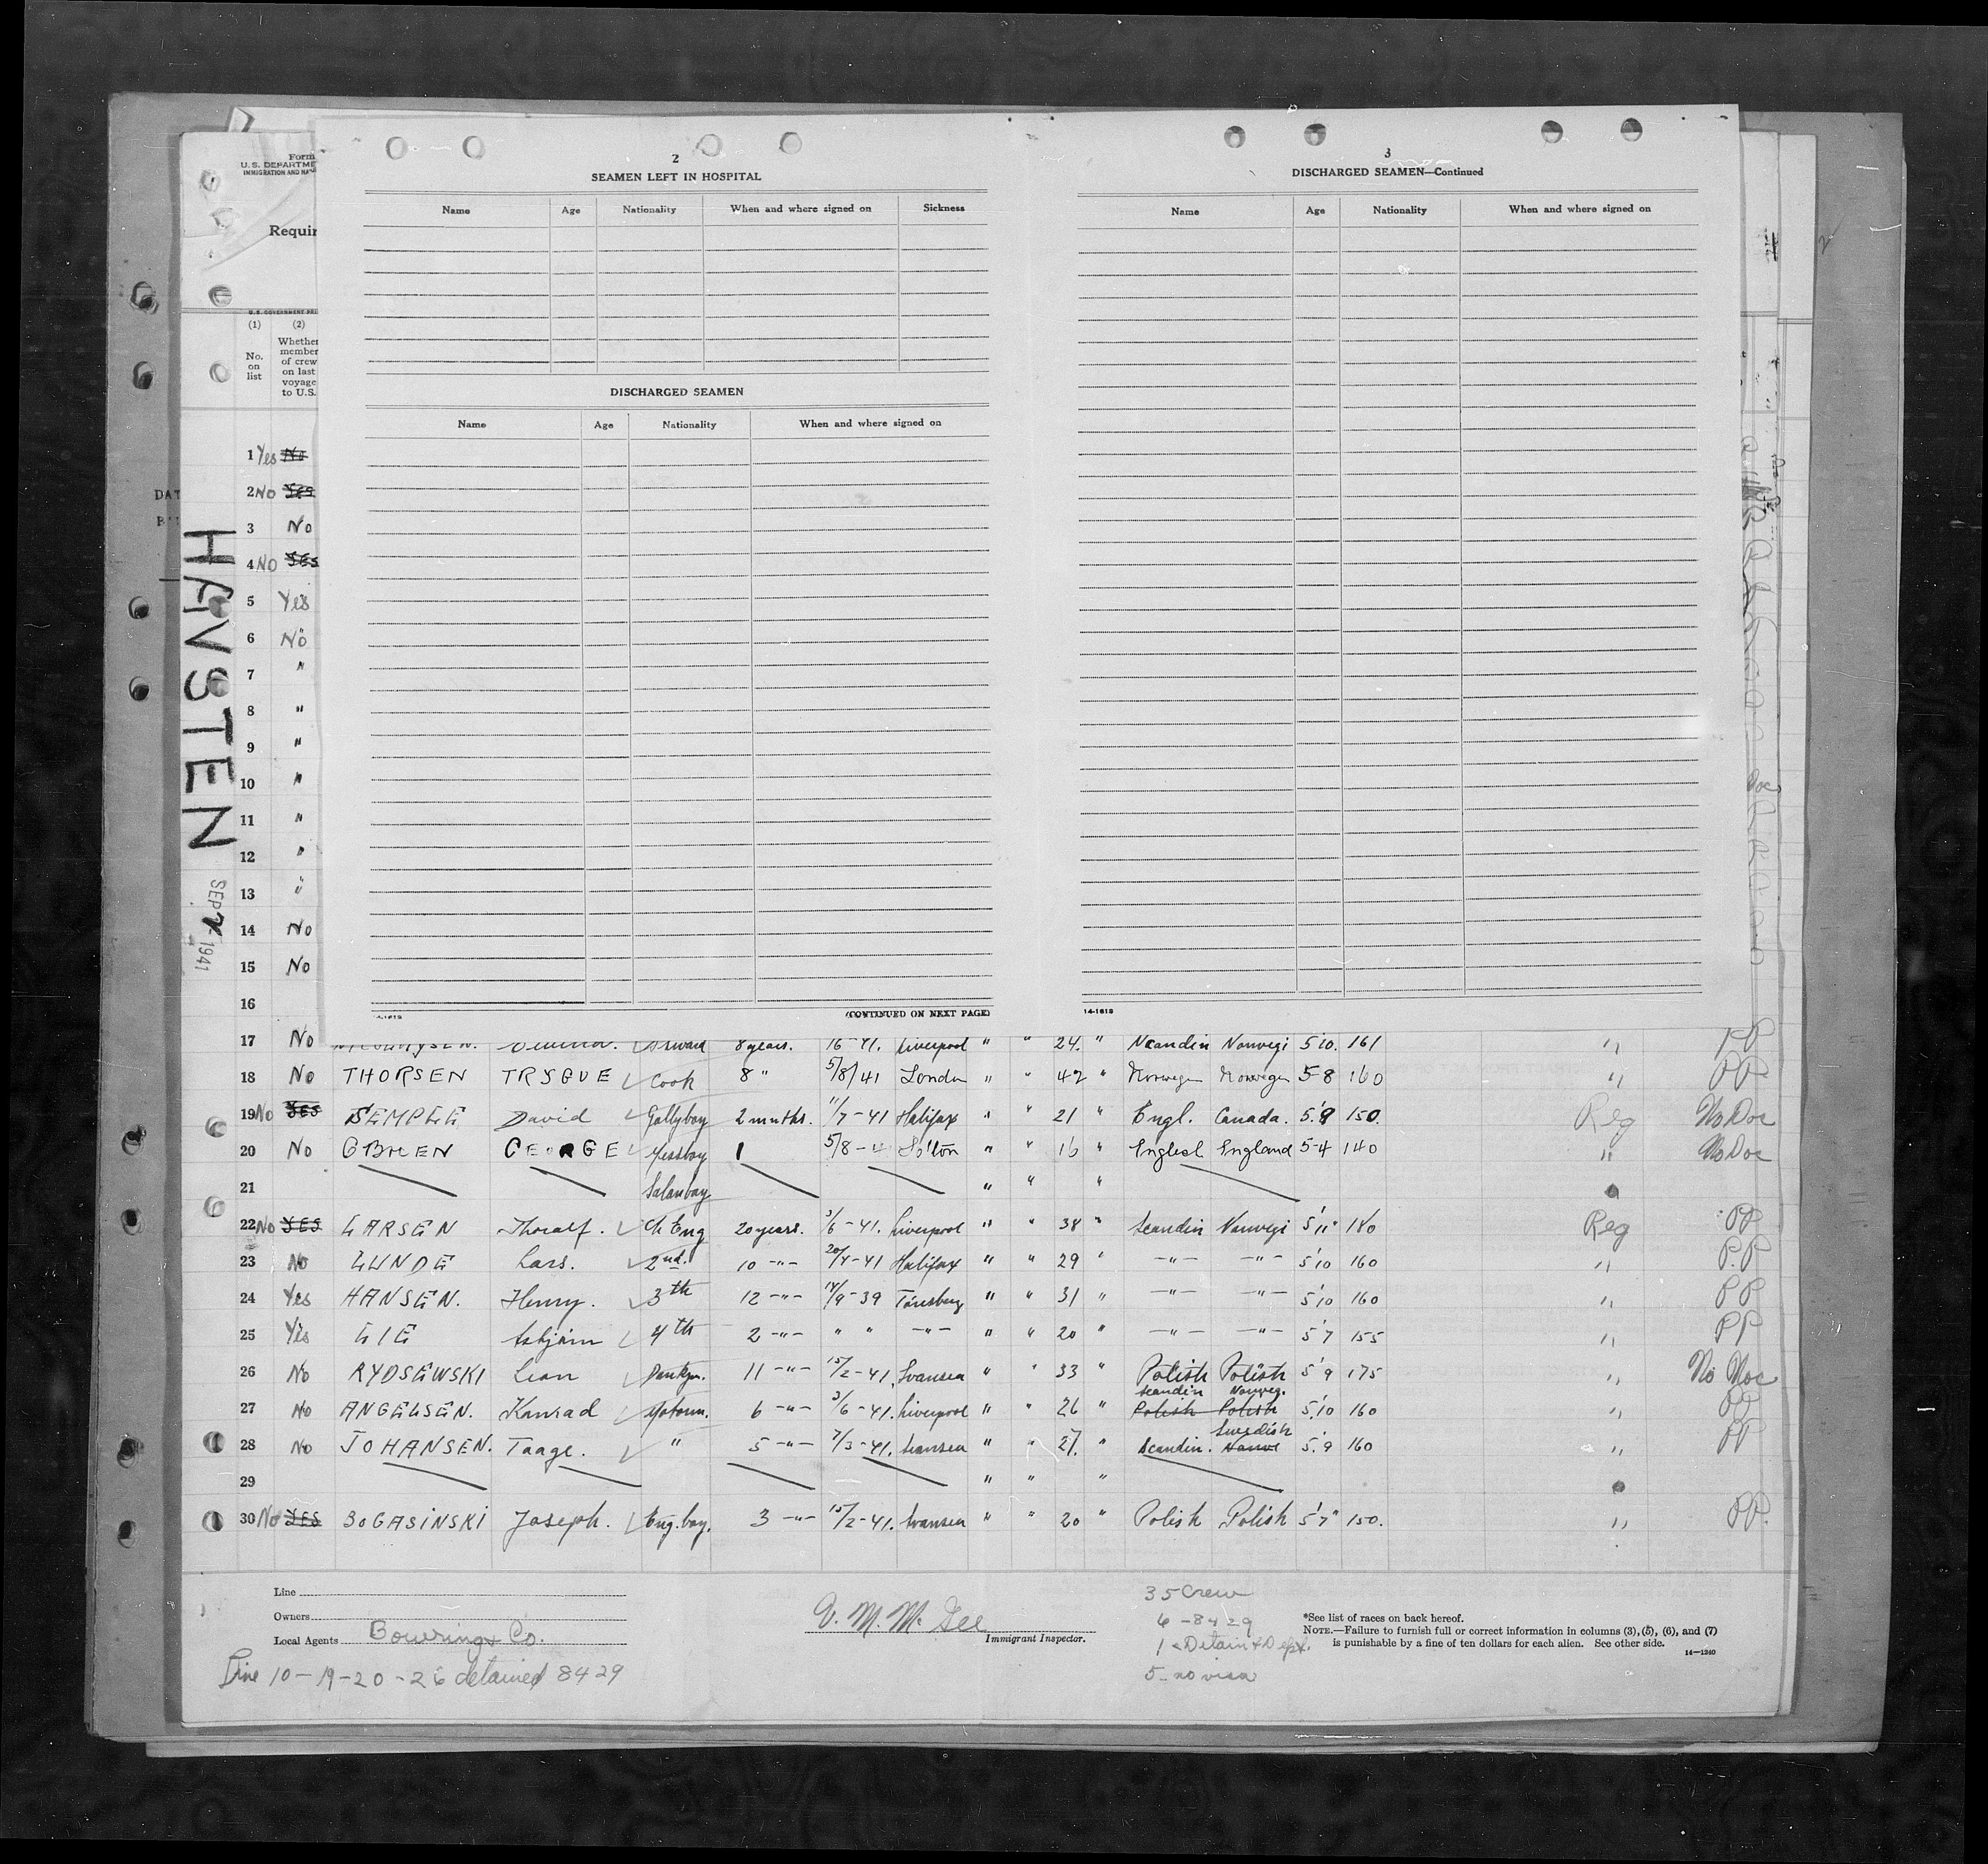 Form
U. S. DEPARTME
IMMIGRATION AND NA
Requir
2
SEAMEN LEFT IN HOSPITAL
Name Age Nationality When and where signed on Sickness
DISCHARGED SEAMEN
Name Age Nationality When and where signed on
(CONTINUED ON NEXT PAGE)
3
DISCHARGED SEAMEN—Continued
Name Age Nationality When and where signed on
14-1613
U.S. GOVERNMENT PRI
(1) (2)
No. on list
Whether member of crew on last voyage to U.S.
HAVSTEN
SEP 1941
1 Yes No
2 No Yes
3 No
4 No Yes
5 Yes
6 No
7 "
8 "
9 "
10 "
11 "
12 "
13 "
14 No
15 No
16
17 No 8 years. 16 -41. Liverpool " " 24. " Scandin Norwegi 5'10. 161 " PP
18 No THORSEN TRYGVE Cook 8 " 5/8/41 London " " 42 " Norwegen Norwegen 5-8 160 " PP
19 No YES SEMPLE David Gallyboy 2 mnths. 11/7-41 Halifax " " 21 " Engl. Canada. 5'9 150. Reg No Doc
20 No OBRIEN GEORGE Messboy 1 5/8-41 " " 16 " English England 5-4 140 " No Doc
21 Salonboy " " "
22 No YES LARSEN Thoralf. Ch Eng 20 years. 3/6-41. Liverpool " " 38 " Scandin Norwegi 5'11" 180 Reg PP
23 No LUNDE Lars. 2nd. 10 -"- 20/4-41 Halifax " " 29 " -"- -"- 5'10 160 " P.P
24 Yes HANSEN. Henry. 3th 12 -"- 14/9-39 Tönsberg " " 31 " -"- -"- 5'10 160 " PP
25 Yes LIE Asbjörn 4th 2 -"- " " -"- " " 20 " -"- -"- 5'7 155 " PP
26 No RYDSEWSKI Leon 11 -"- 15/2-41. Svansea " " 33 " Polish Polish 5'9 175 " No Doc
27 No ANGELSEN. Konrad Motorm. 6 -"- 3/6-41. Liverpool " " 26 " Scandin Norweg. Polish Polish 5'10 160 " PP
28 No JOHANSEN. Taage. " 5 -"- 7/3-41. Svansea " " 27. " Scandin. Swedish Norwe 5'9 160 " PP
29 " " "
30 No YES BOGASINSKI Joseph. Eng.boy. 3 -"- 15/2-41. Svansea " " 20 " Polish Polish 5'7" 150. " PP.
Line
Owners
Local Agents Bowring & Co.
Line 10-19-20-26 detained 8429
V. M. McGee
Immigrant Inspector.
35 Crew
6 - 8429
1 Detain & Dept.
5 - no visa
*See list of races on back hereof.
NOTE.—Failure to furnish full or correct information in columns (3), (5), (6), and (7)
is punishable by a fine of ten dollars for each alien. See other side.
14—1240